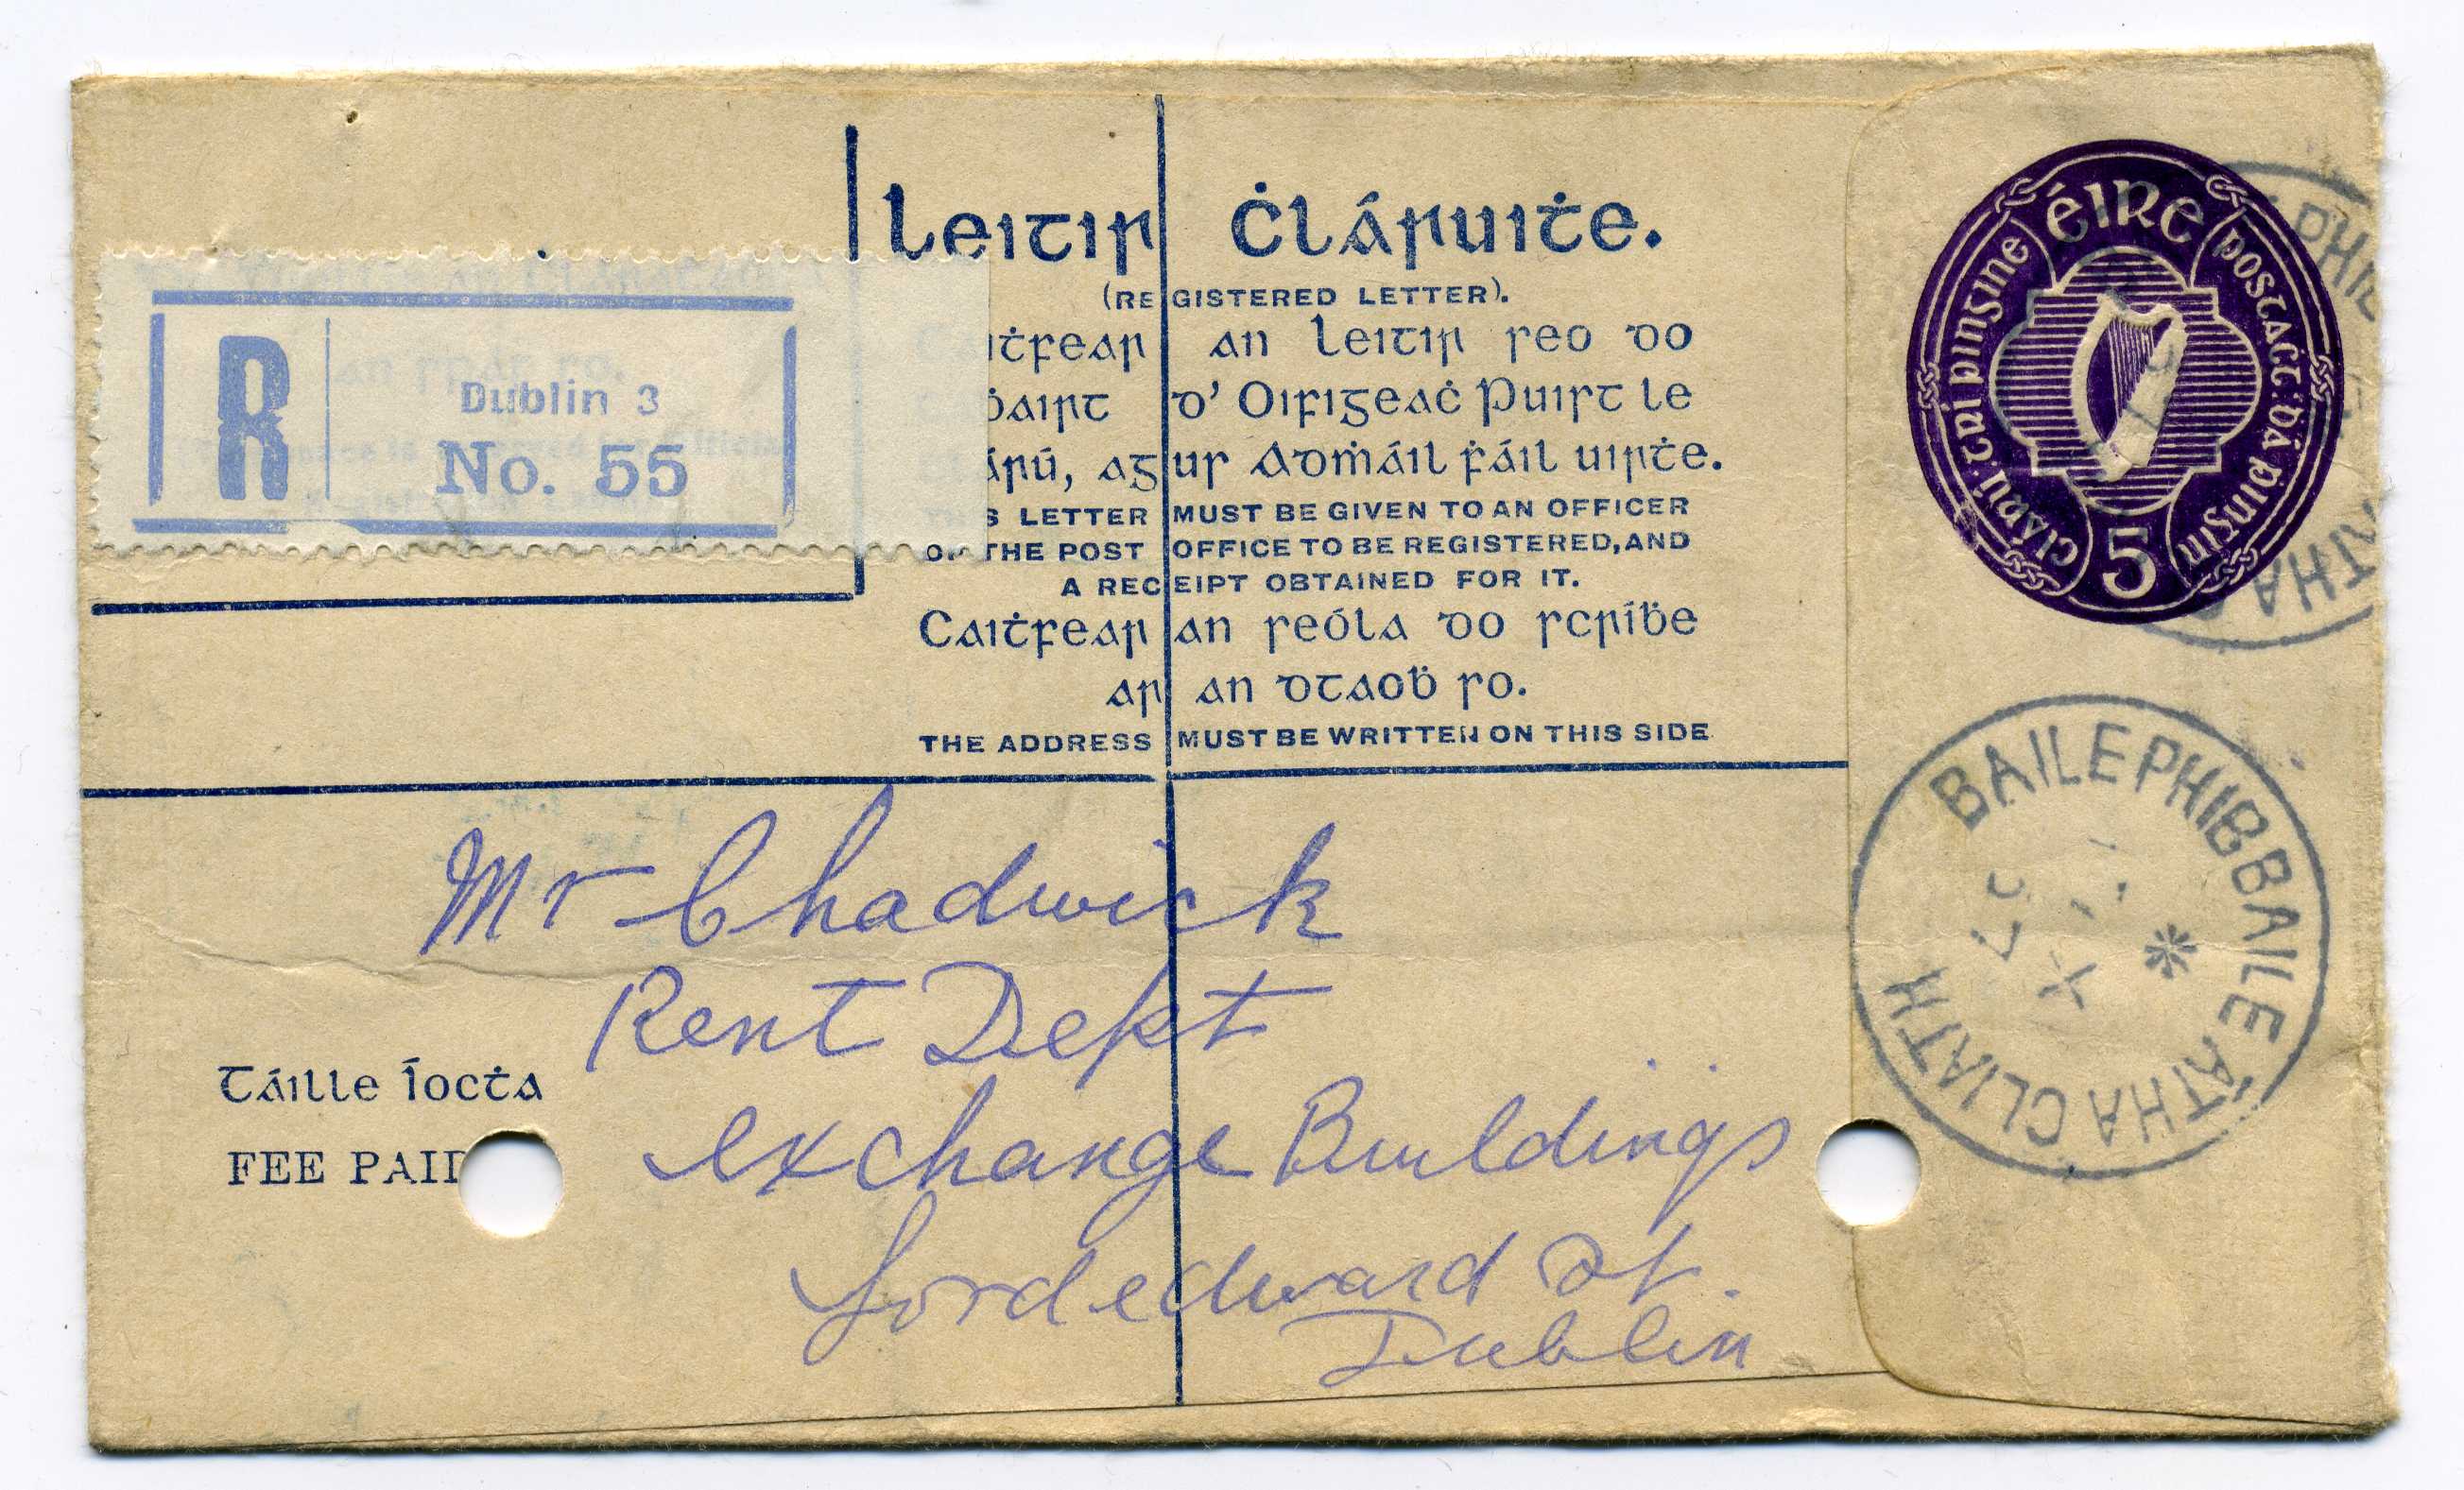 Leitir Ċláruiṫe.
(REGISTERED LETTER).
an leitir seo do
d' Oifigeaċ Puirt le
agus Admáil ḟáil uirṫe.
LETTER MUST BE GIVEN TO AN OFFICER
OF THE POST OFFICE TO BE REGISTERED, AND
A RECEIPT OBTAINED FOR IT.
Caiṫfear an seóla do scríḃe
ar an dtaoḃ so.
THE ADDRESS MUST BE WRITTEN ON THIS SIDE
R
Dublin 3
No. 55
éire
postaċt: dá pingin
clárú: trí pingine
5
BAILE PHIBB BAILE ÁTHA CLIATH
Mr Chadwick
Rent Dept
Exchange Buildings
Lord edward St.
Dublin
Táille íocṫa
FEE PAID